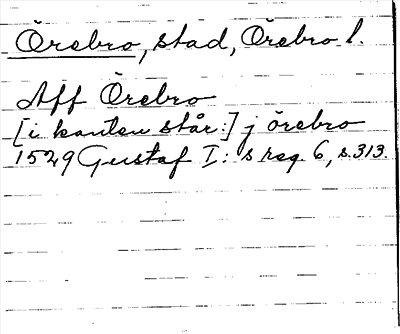 Örebro, stad, Örebro l.
Aff Örebro
[i kanten står:] j örebro
1529 Gustaf I: s reg. 6, s. 313.